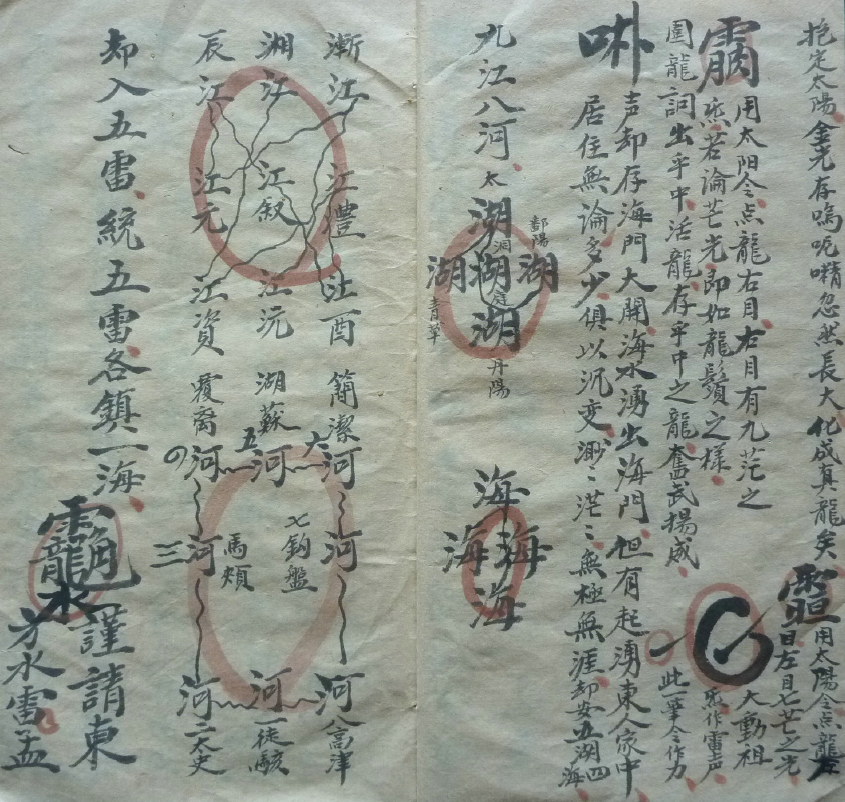 抱定太陽金光存嗚吪嚌忽然長大化成真龍矣
用太陽令点龍左
目左目七芒之光
用太阳令点龍右目右目有九茫之
炁若論芒光即如龍鬚之樣
大動祖
炁作雷声
圍龍詞出乎中活龍存乎中之龍奮武揚威
此一筆令作力
声却存海門大開海水湧出海門但有起湧東人家中
居住無論多少俱以沉变渺渺茫茫無極無涯却安五湖四
海
九江八河
太湖
鄱陽湖
洞庭湖
青草湖
丹陽湖
海海海海
漸江江澧江酉
湘江江叙江沅
辰江江元江資
簡潔河
湖蘇河
覆鬴河
六
五
七鈎盤河
馬頰河
三
河八高津
河一徒駭
河二太史
却入五雷統五雷各鎮一海
謹請東
方水雷孟